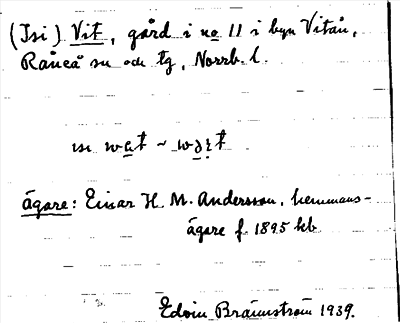 (Isi) Vit, gård i no 11 i byn Vitån,
Råneå sn och tg, Norrb. l.
ägare: Einar H. M. Andersson, hemmans-
ägare f. 1895 kb
Edvin Brännström 1939.